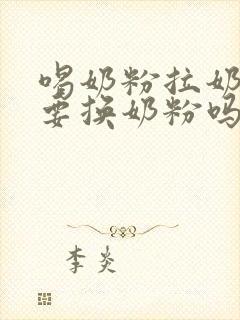 喝奶粉拉奶
要换奶粉吗
李炎